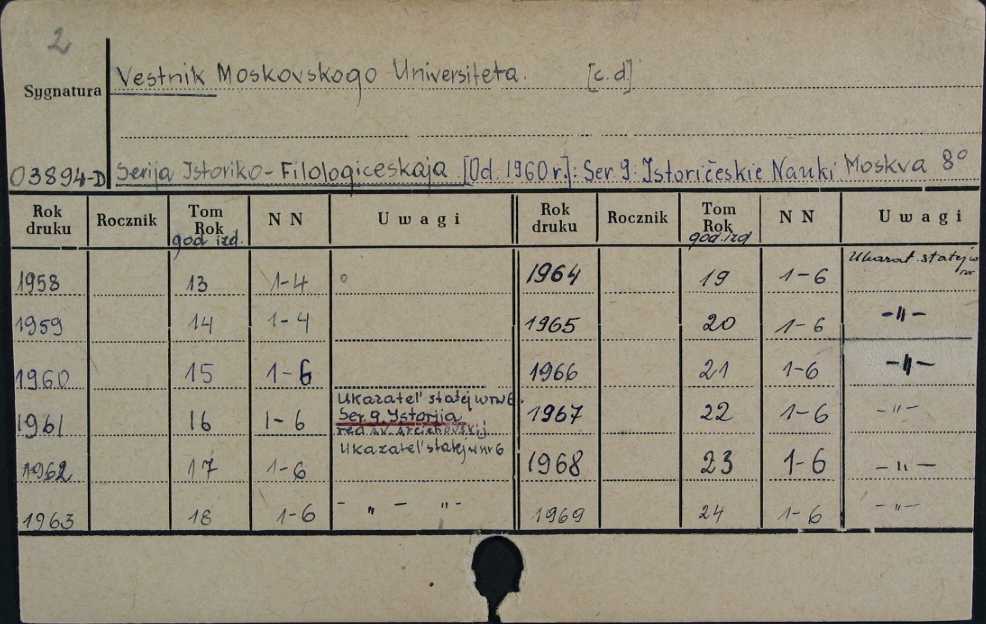 2
Vestnik Moskovskogo Universiteta. [c.d]
Sygnatura
03894-D Serija Istoriko-Filologiceskaja [Od. 1960 r.]: Ser 9. Istoričeskie Nauki Moskva 8°
Rok druku Rocznik Tom Rok god izd. N N Uwagi Rok druku Rocznik Tom Rok god. izd N N Uwagi
1958 13 1-4 1964 19 1-6 Ukazat. statej w nr
1959 14 1-4 1965 20 1-6 -"-
1960 15 1-6 1966 21 1-6 -"-
1961 16 1-6 Ukazatel' statej w nr 6. Ser 9. Istorija 1967 22 1-6 -"-
1962 17 1-6 Ukazatel' statej w nr 6 1968 23 1-6 -"-
1963 18 1-6 - " - "- 1969 24 1-6 -"-